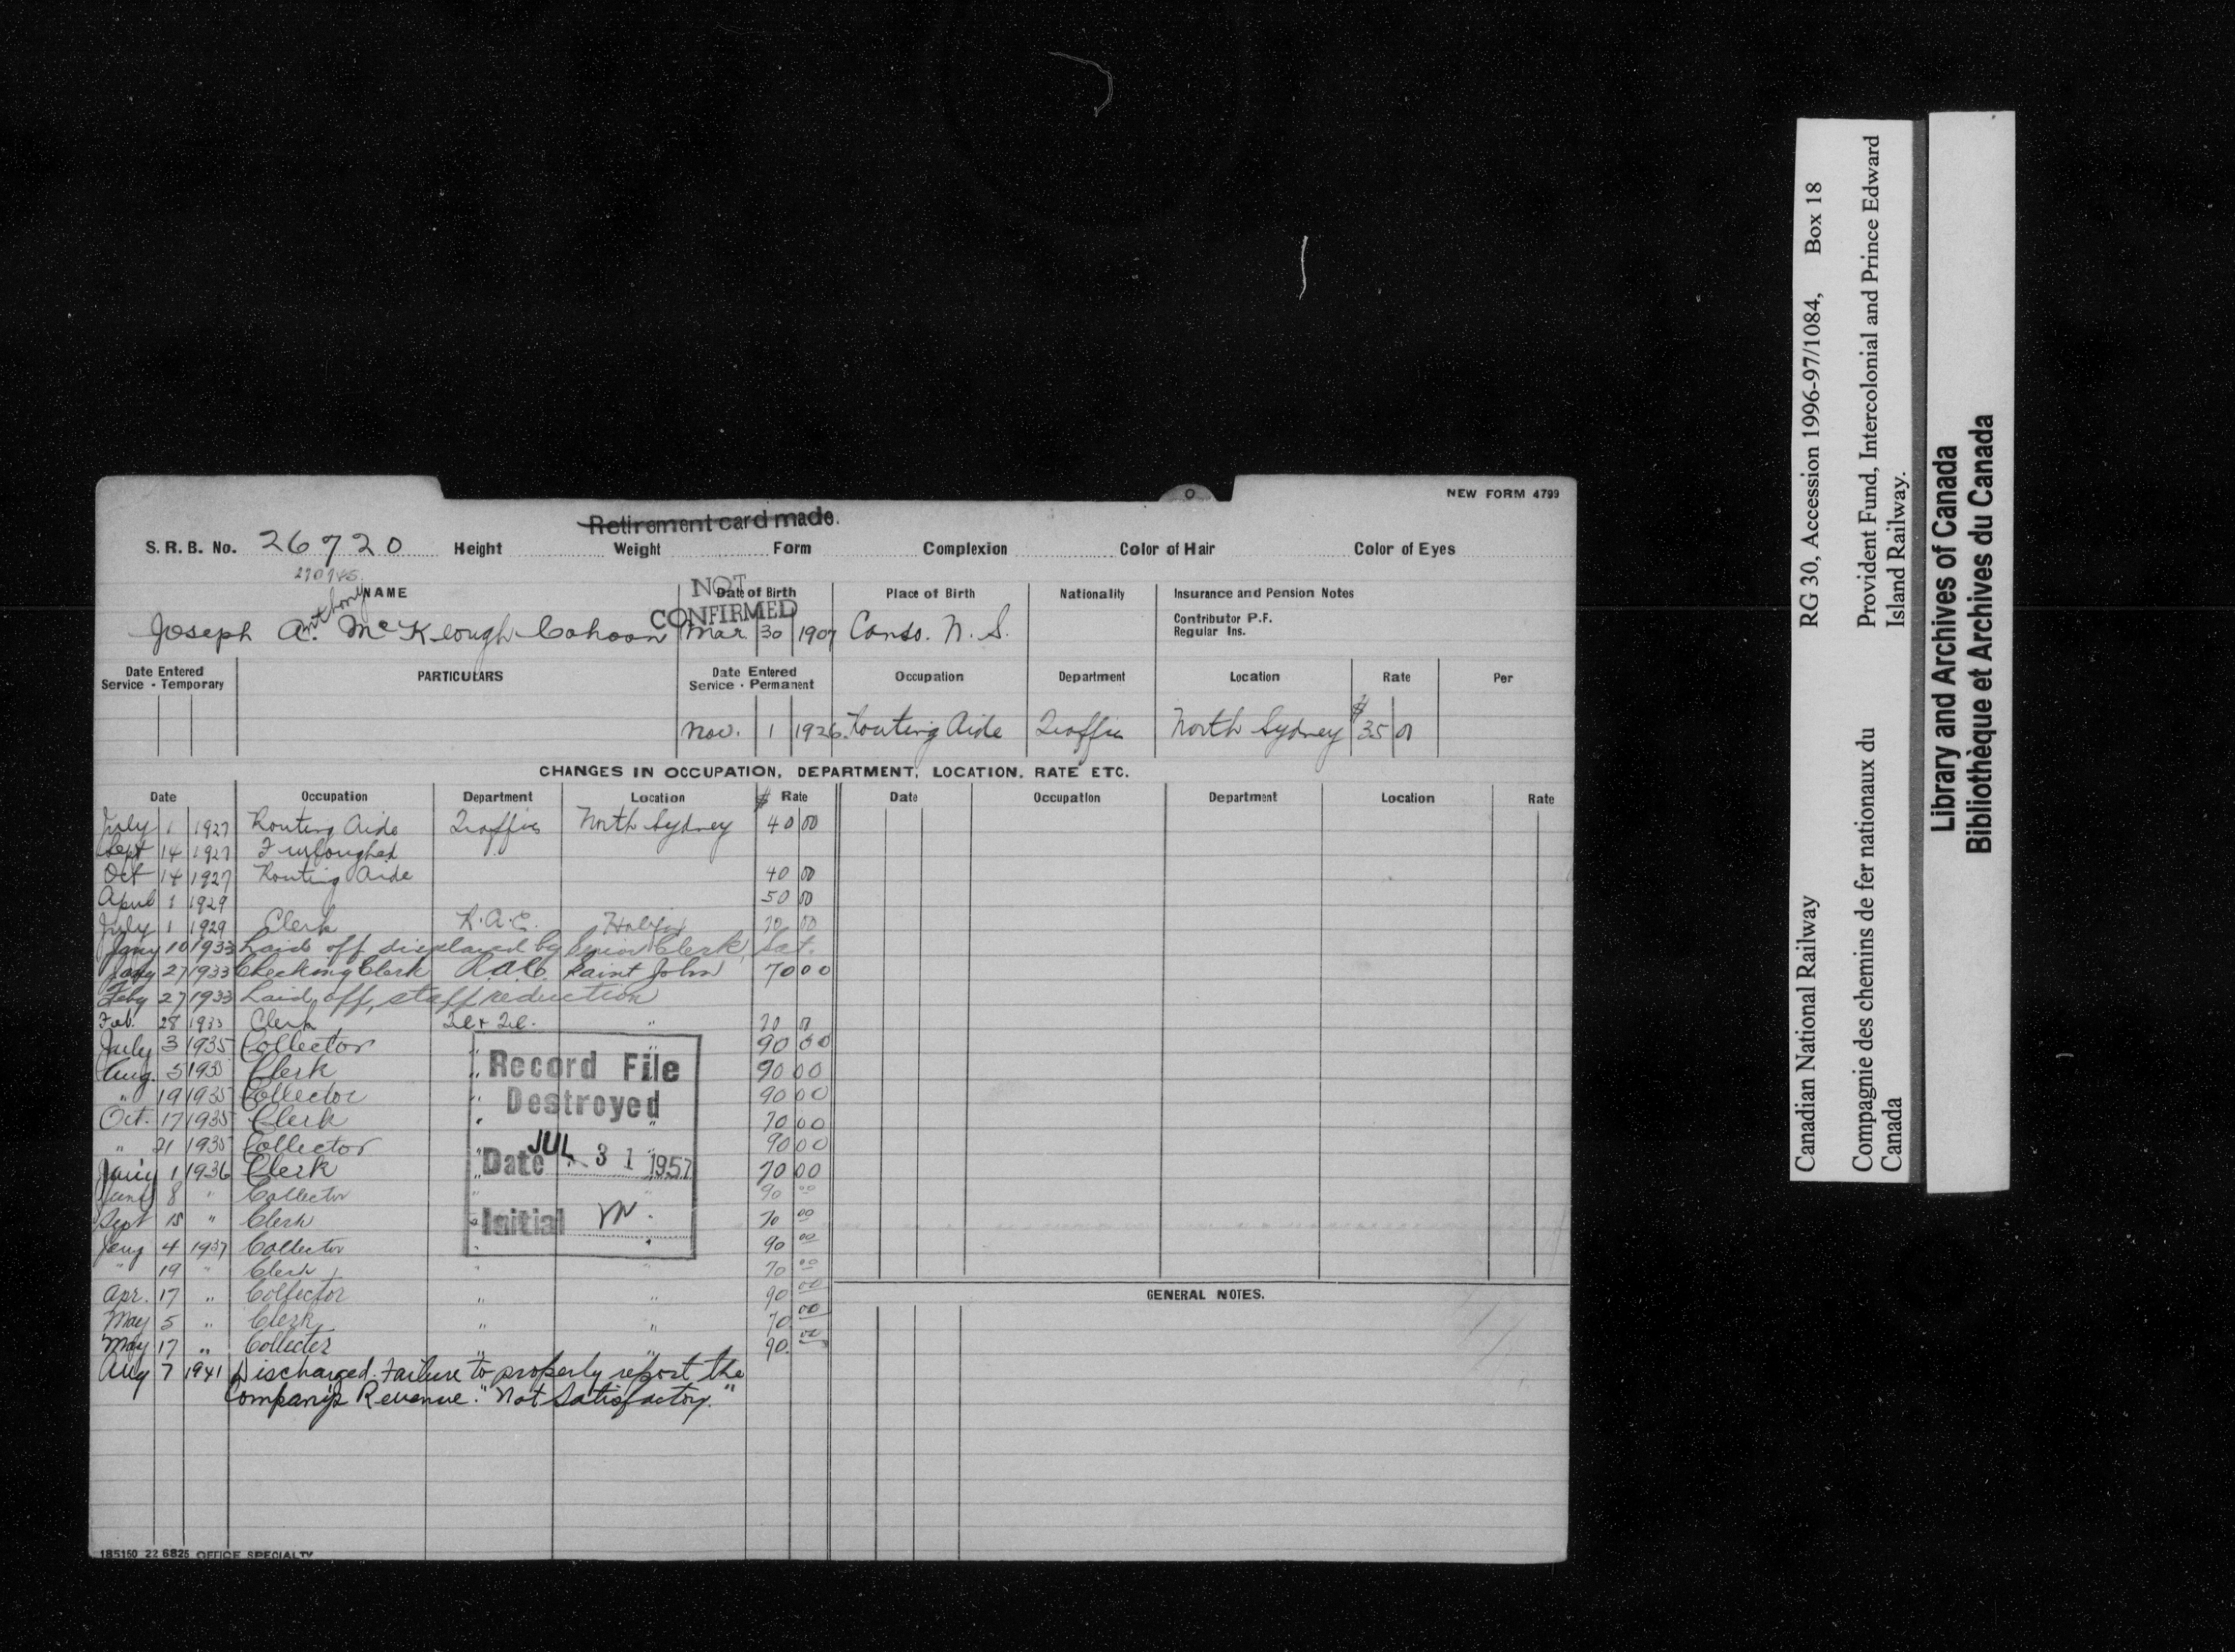 NEW FORM 4799
Retirement card made.
S. R. B. No. 26720 Height Weight Form Complexion Color of Hair Color of Eyes
NAME
NOT CONFIRMED
Date of Birth
Place of Birth
Nationality
Insurance and Pension Notes
Contributor P.F.
Regular Ins.
Anthony
Joseph An. McKeough Cohoon Mar 30 1907 Canso. N. S.
Date Entered Service - Temporary
PARTICULARS
Date Entered Service - Permanent
Occupation Department Location Rate Per
Nov. 1 1926 Routing Aide Traffic North Sydney $ 35 00
CHANGES IN OCCUPATION, DEPARTMENT, LOCATION, RATE ETC.
Date Occupation Department Location $ Rate Date Occupation Department Location Rate
July 1 1927 Routing Aide Traffic North Sydney 40 00
Sept 14 1927 Furloughed
Oct 14 1927 Routing Aide 40 00
April 1 1929 50 00
July 1 1929 Clerk R.A.C. Halifax 70 00
Jany 10 1933 Laid off displaced by Senior Clerk, Sat.
Jany 27 1933 Checking Clerk R.A.C. Saint John 70 00
Feby 27 1933 Laid off, staff reduction
Feb. 28 1935 Clerk " 70 0
July 3 1935 Collector " " 90 00
Aug. 5 1935 Clerk " 70 00
" 19 1935 Collector " 90 00
Oct. 17 1935 Clerk " " 70 00
" 21 1935 Collector " " 90 00
Jan'y 1 1936 Clerk " " 70 00
June 8 " Collector " " 90 00
Sept 15 " Clerk " 70 00
Jany 4 1937 Collector " " 90 00
" 19 " Clerk " " 70 00
Apr. 17 " Collector " " 90 00
May 5 " Clerk " " 70 00
May 17 " Collecter " " 90. 00
Aug 7 1941 Discharged. Failure to properly report the
Company's Revenue. "Not Satisfactory."
Record File
Destroyed
Date JUL 31 1957
Initial
GENERAL NOTES.
185150 22 6825 OFFICE SPECIALTY
Canadian National Railway RG 30, Accession 1996-97/1084, Box 18
Compagnie des chemins de fer nationaux du Provident Fund, Intercolonial and Prince Edward
Canada Island Railway.
Library and Archives of Canada
Bibliothèque et Archives du Canada